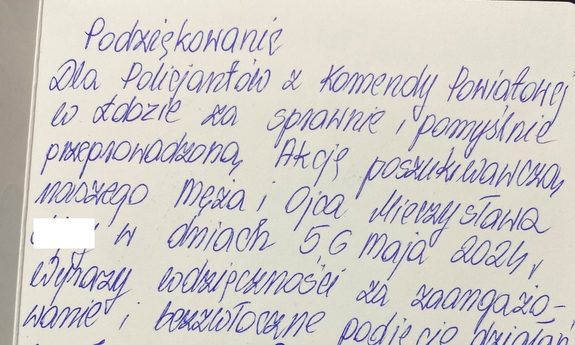 Podziękowanie
Dla Policjantów z Komendy Powiatowej
w Łdzie za sprawnie i pomyślnie
przeprowadzoną Akcję poszukiwawczą
naszego męża i Ojca Mieczysława
w dniach 5 6 maja 2024r
Wyrazy wdzięczności za zaangażo-
wanie i bezzwłoczne podjęcie działań